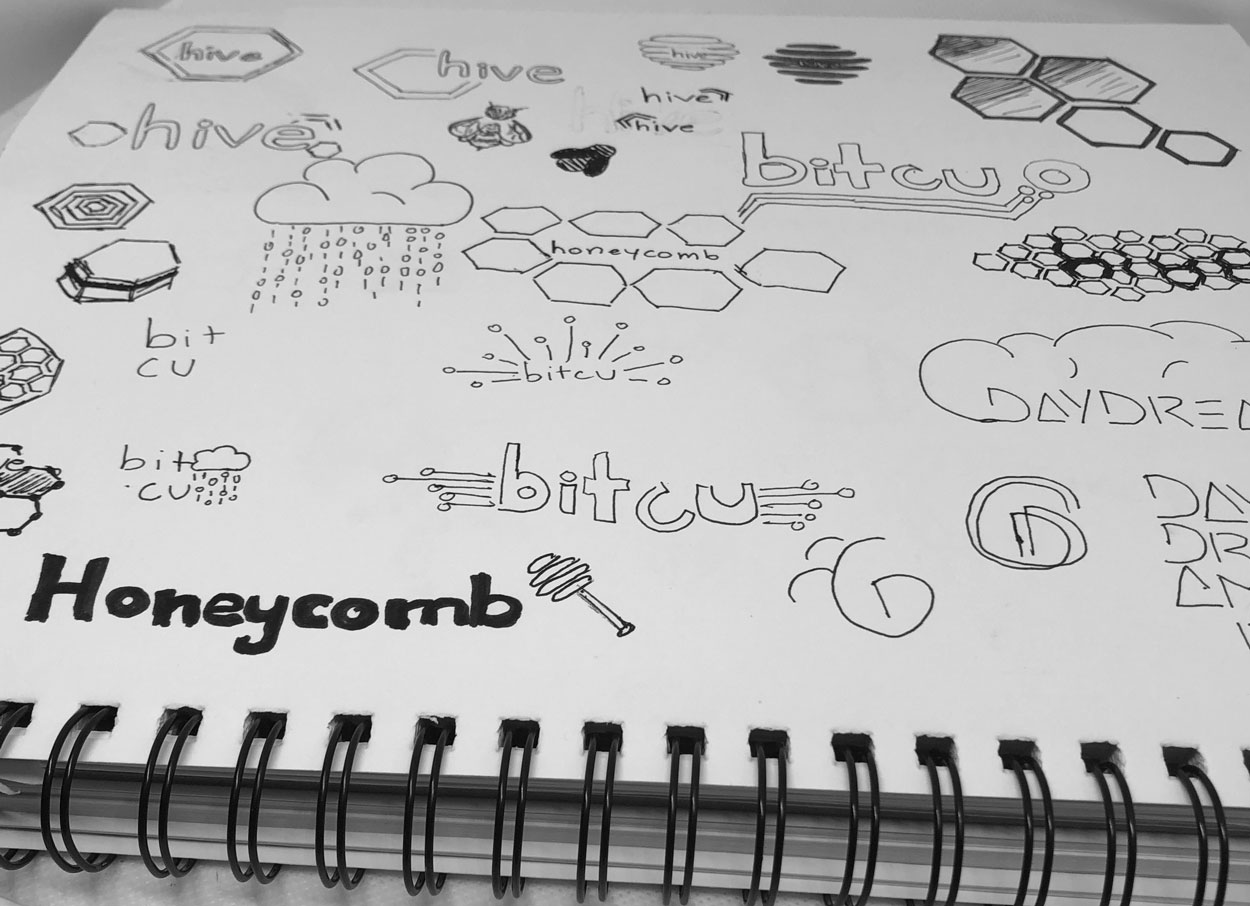 hive
hive
hive
hive
hive
hive
hive
bitcu
honeycomb
bit
cu
bitcu
DAYDREA
bit
cu
bitcu
D
DA
DR
AN
Honeycomb